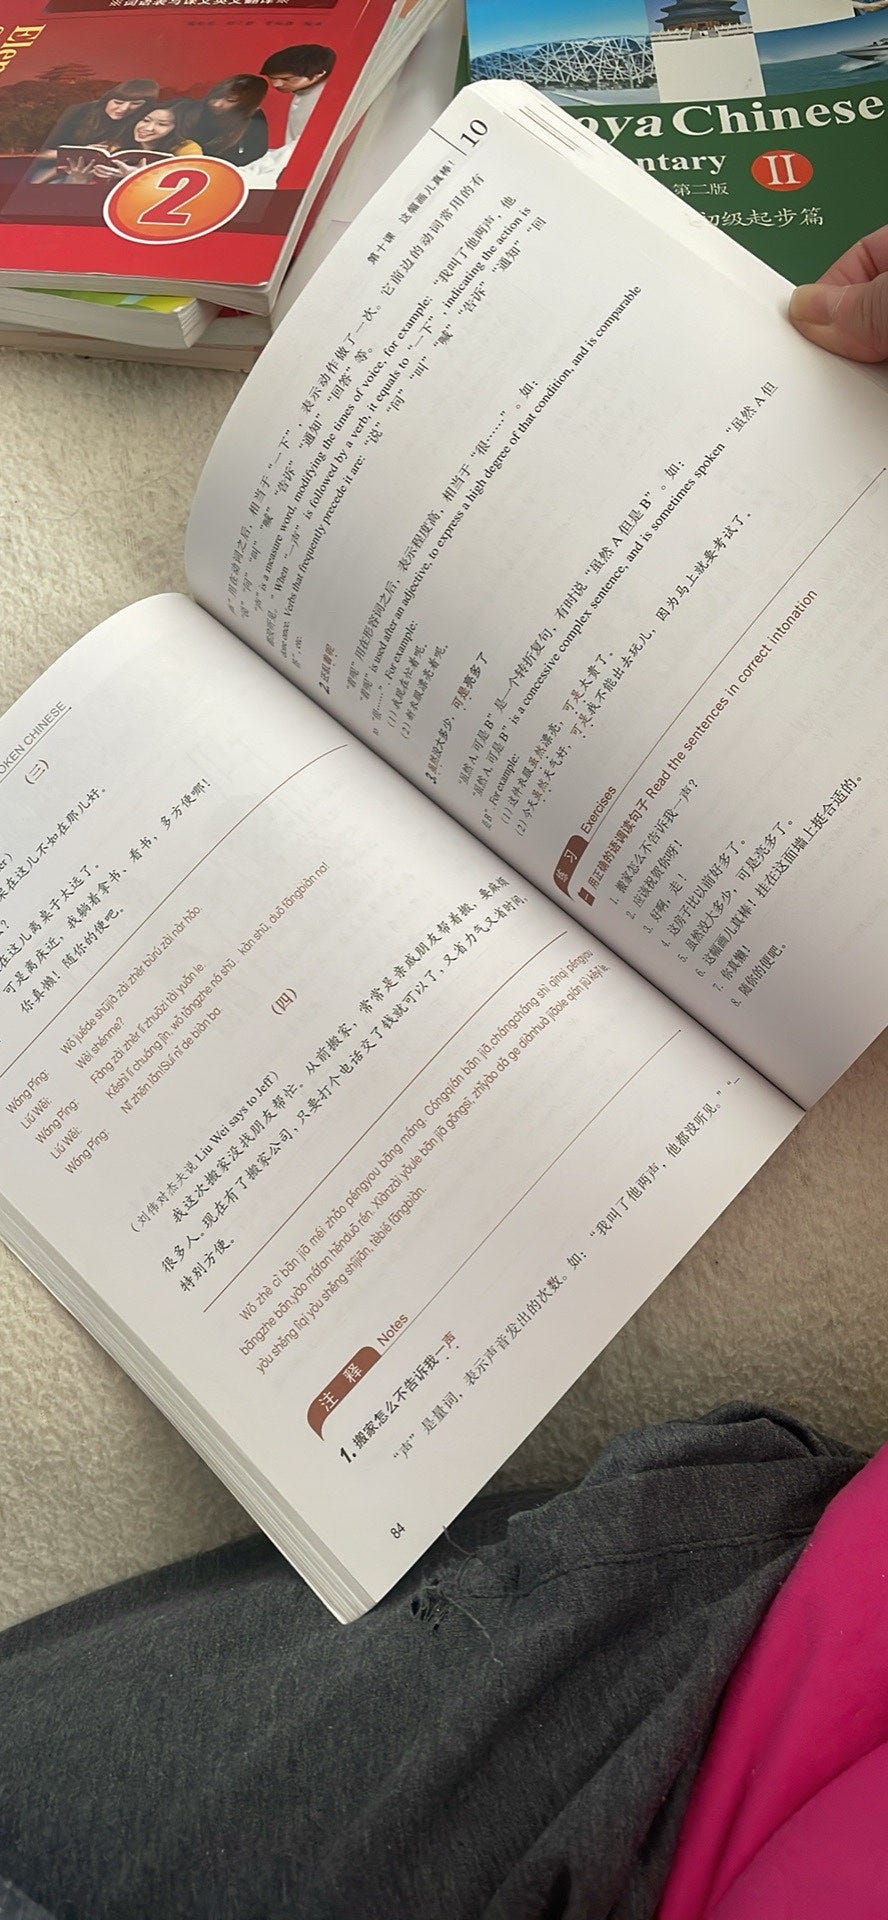 ※词语表与课文英文翻译※
Elem
2
oya Chinese
ntary II
第二版
初级起步篇
OKEN CHINESE
(三)
在这儿不如在那儿好。
在这儿离桌子太远了。
可是离床近，我躺着拿书、看书，多方便哪！
你真懒！随你的便吧。
Wáng Píng: Wǒ juéde shūjià zài zhèr bùrú zài nàr hǎo.
Liú Wěi: Wèi shénme?
Wáng Píng: Fàng zài zhèr lí zhuōzi tài yuǎn le.
Liú Wěi: Kěshì lí chuáng jìn, wǒ tǎngzhe ná shū、kàn shū, duō fāngbiàn na!
Wáng Píng: Nǐ zhēn lǎn!Suí nǐ de biàn ba.
(四)
(刘伟对杰夫说 Liu Wei says to Jeff)
我这次搬家没找朋友帮忙。从前搬家，常常是亲戚朋友帮着搬，要麻烦
很多人。现在有了搬家公司，只要打个电话交了钱就可以了，又省力气又省时间，
特别方便。
Wǒ zhè cì bān jiā méi zhǎo péngyou bāng máng. Cóngqián bān jiā,chángcháng shì qīnqi péngyou
bāngzhe bān,yào máfan hěnduō rén. Xiànzài yǒule bān jiā gōngsī, zhǐyào dǎ ge diànhuà jiāole qián jiù kěyǐ le,
yòu shěng lìqi yòu shěng shíjiān, tèbié fāngbiàn.
注 释 Notes
1. 搬家怎么不告诉我一声
“声”是量词，表示声音发出的次数。如：“我叫了他两声，他都没听见。”“一
84
第十课 这幅画儿真棒！ 10
声”用在动词之后，相当于“一下”，表示动作做了一次。它前边的动词常用的有
“说”“问”“叫”“喊”“告诉”“通知”“回答”等。
“声” is a measure word, modifying the times of voice, for example: “我叫了他两声，他
都没听见。” When “一声” is followed by a verb, it equals to “一下”, indicating the action is
done once. Verbs that frequently precede it are: “说”“问”“叫”“喊”“告诉”“通知”“回
答”, etc.
“着呢”用在形容词之后，表示程度高，相当于“很……”。如：
“着呢” is used after an adjective, to express a high degree of that condition, and is comparable
to “很……”. For example:
(1) 我现在忙着呢。
(2) 新衣服漂亮着呢。
3. 虽然没大多少，可是亮多了
“虽然 A, 可是 B”是一个转折复句，有时说“虽然 A 但是 B”。如：
“虽然 A, 可是 B” is a concessive complex sentence, and is sometimes spoken “虽然 A 但
是 B”. For example:
(1) 这件衣服虽然漂亮，可是太贵了。
(2) 今天虽然天气好，可是我不能出去玩儿，因为马上就要考试了。
练 习 Exercises
一 用正确的语调读句子 Read the sentences in correct intonation
1. 搬家怎么不告诉我一声？
2. 应该祝贺你呀！
3. 好啊，走！
4. 这房子比以前好多了。
5. 虽然没大多少，可是亮多了。
6. 这幅画儿真棒！挂在这面墙上挺合适的。
7. 你真懒！
8. 随你的便吧。